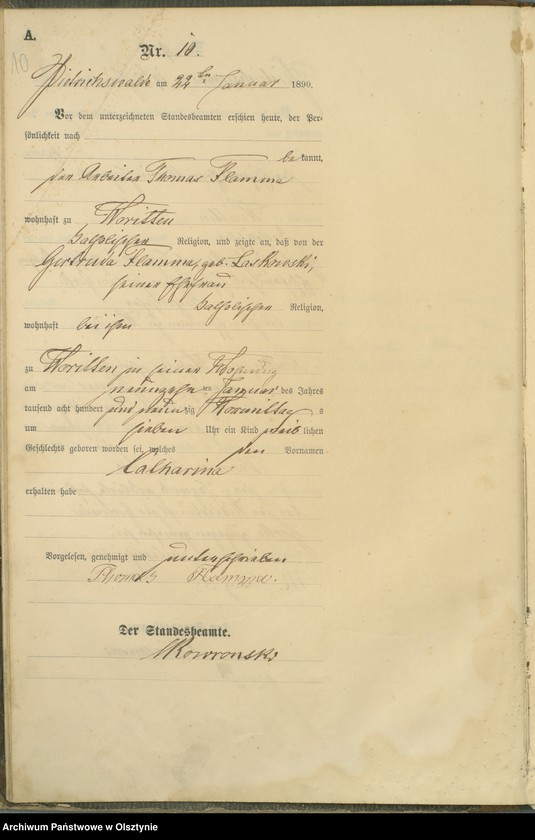 A.
10
Nr. 10.
Dietrichswalde am 22ten Januar 1890.
Vor dem unterzeichneten Standesbeamten erschien heute, der Per-
sönlichkeit nach
be kannt,
der Arbeiter Thomas Flamma
wohnhaft zu Woritten
katholischer Religion, und zeigte an, daß von der
Gertruda Flamma, geb. Laskowski,
seiner Ehefrau
katholischer Religion,
wohnhaft bei ihm
zu Woritten in seiner Wohnung
am neunzehnten Januar des Jahres
tausend acht hundert und neunzig Vormittags
um sieben Uhr ein Kind weiblichen
Geschlechts geboren worden sei, welches den Vornamen
Catharina
erhalten habe
Vorgelesen, genehmigt und unterschrieben
Thomas Flamma.
Der Standesbeamte.
Archiwum Państwowe w Olsztynie